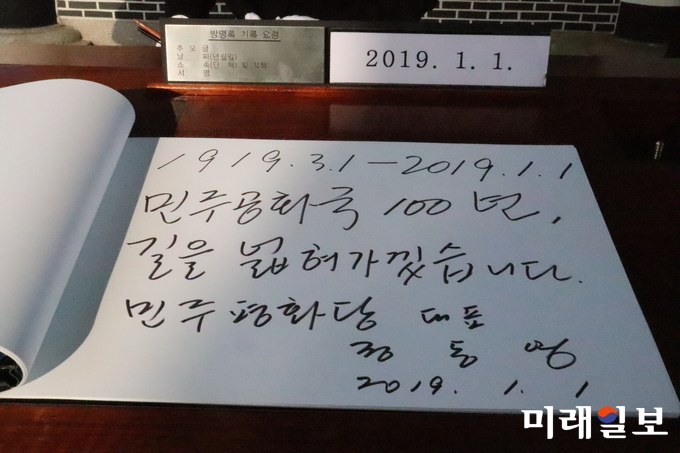 방명록 기록 요령
추모글
날 짜(년월일)
소 속(단 체) 및 직책
서 명
2019. 1. 1.
1919.3.1-2019.1.1
민주공화국 100년,
길을 넓혀가겠습니다.
민주평화당 대표
정 동 영
2019. 1. 1
미래일보